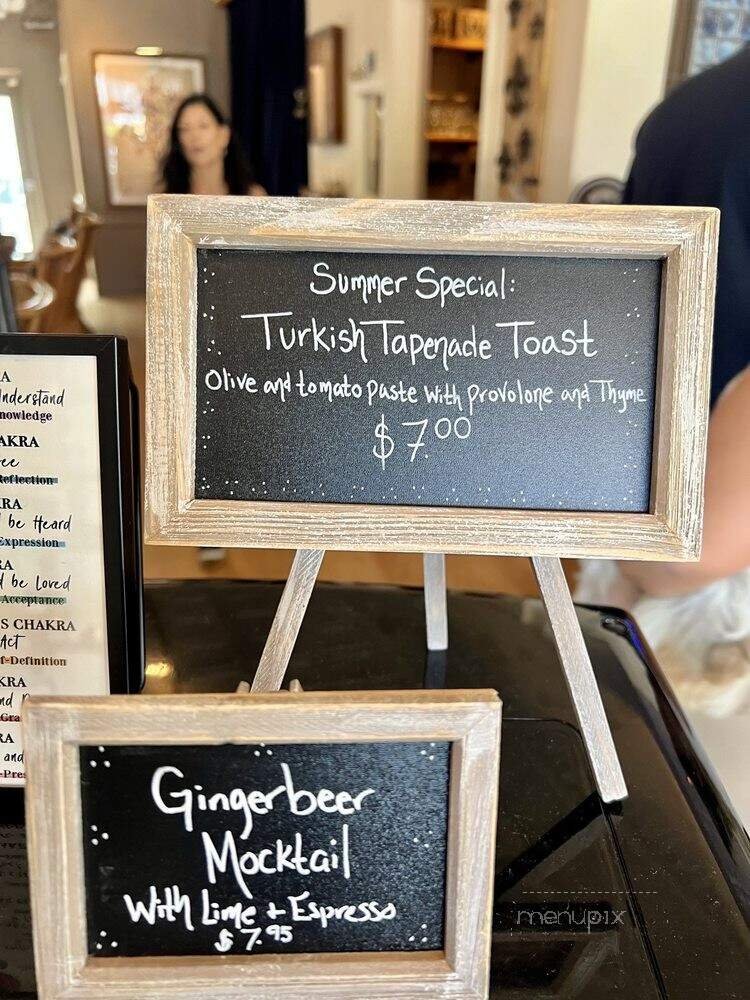 Summer Special:
Turkish Tapenade Toast
Olive and tomato paste with provolone and Thyme
$7.00
Understand
AKRA
Reflection
be Heard
Expression
be Loved
Acceptance
S CHAKRA
Act
f-Definition
and
Gingerbeer
Mocktail
With Lime + Espresso
$7.95
menupix